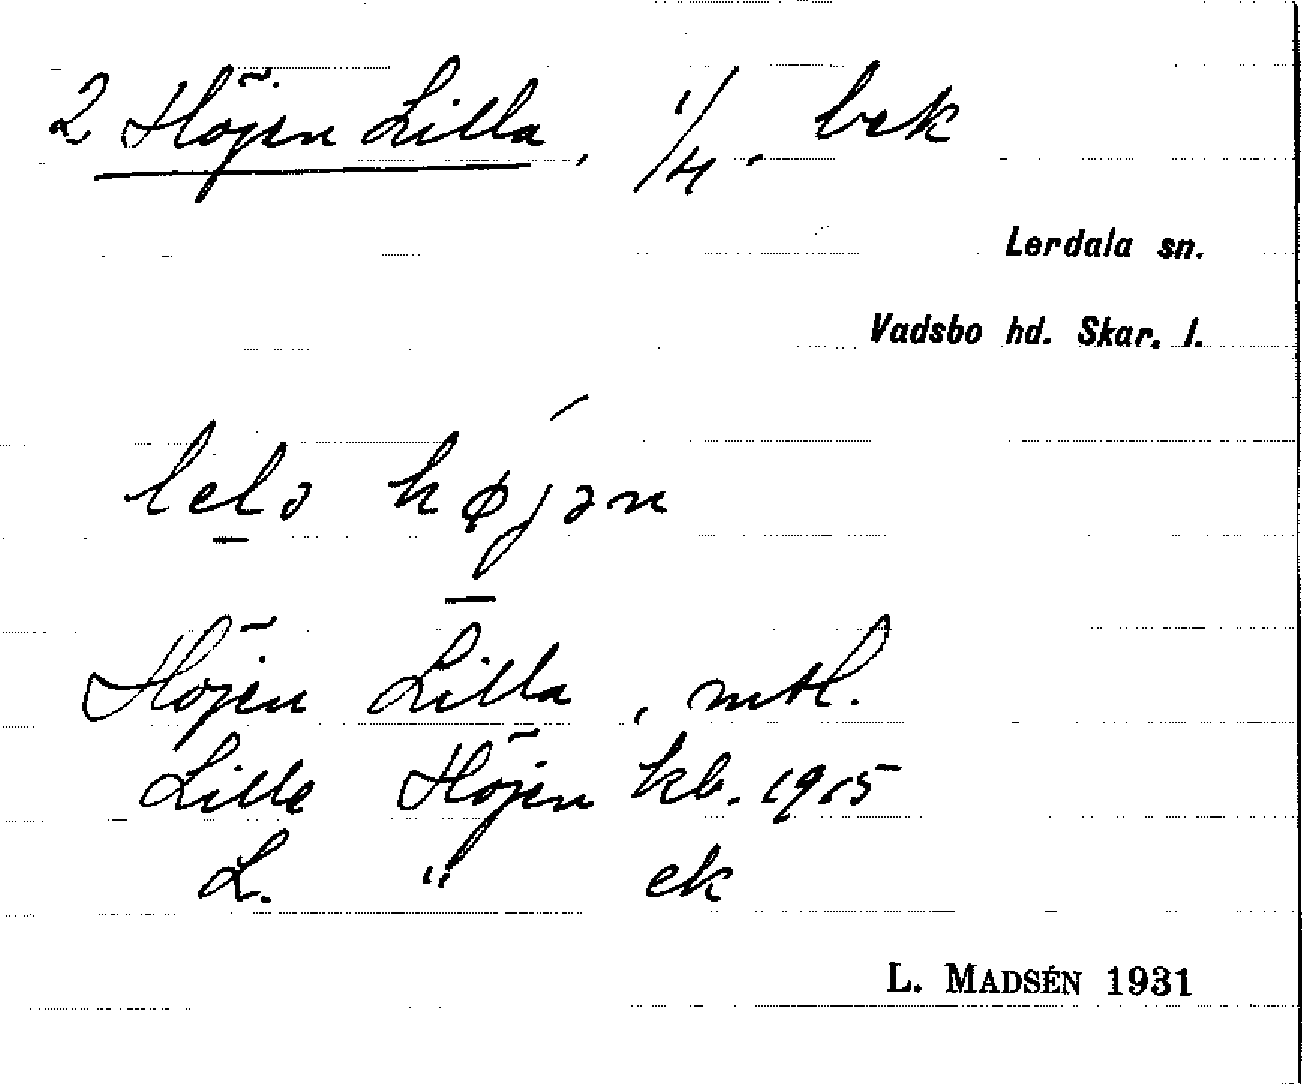 2 Höjen Lilla, 1/4. bek
Lerdala sn.
Vadsbo hd. Skar. l.
lelə højən
Höjen Lilla, mtl.
Lille Höjen kb. 1915
L. " ek
L. MADSÉN 1931